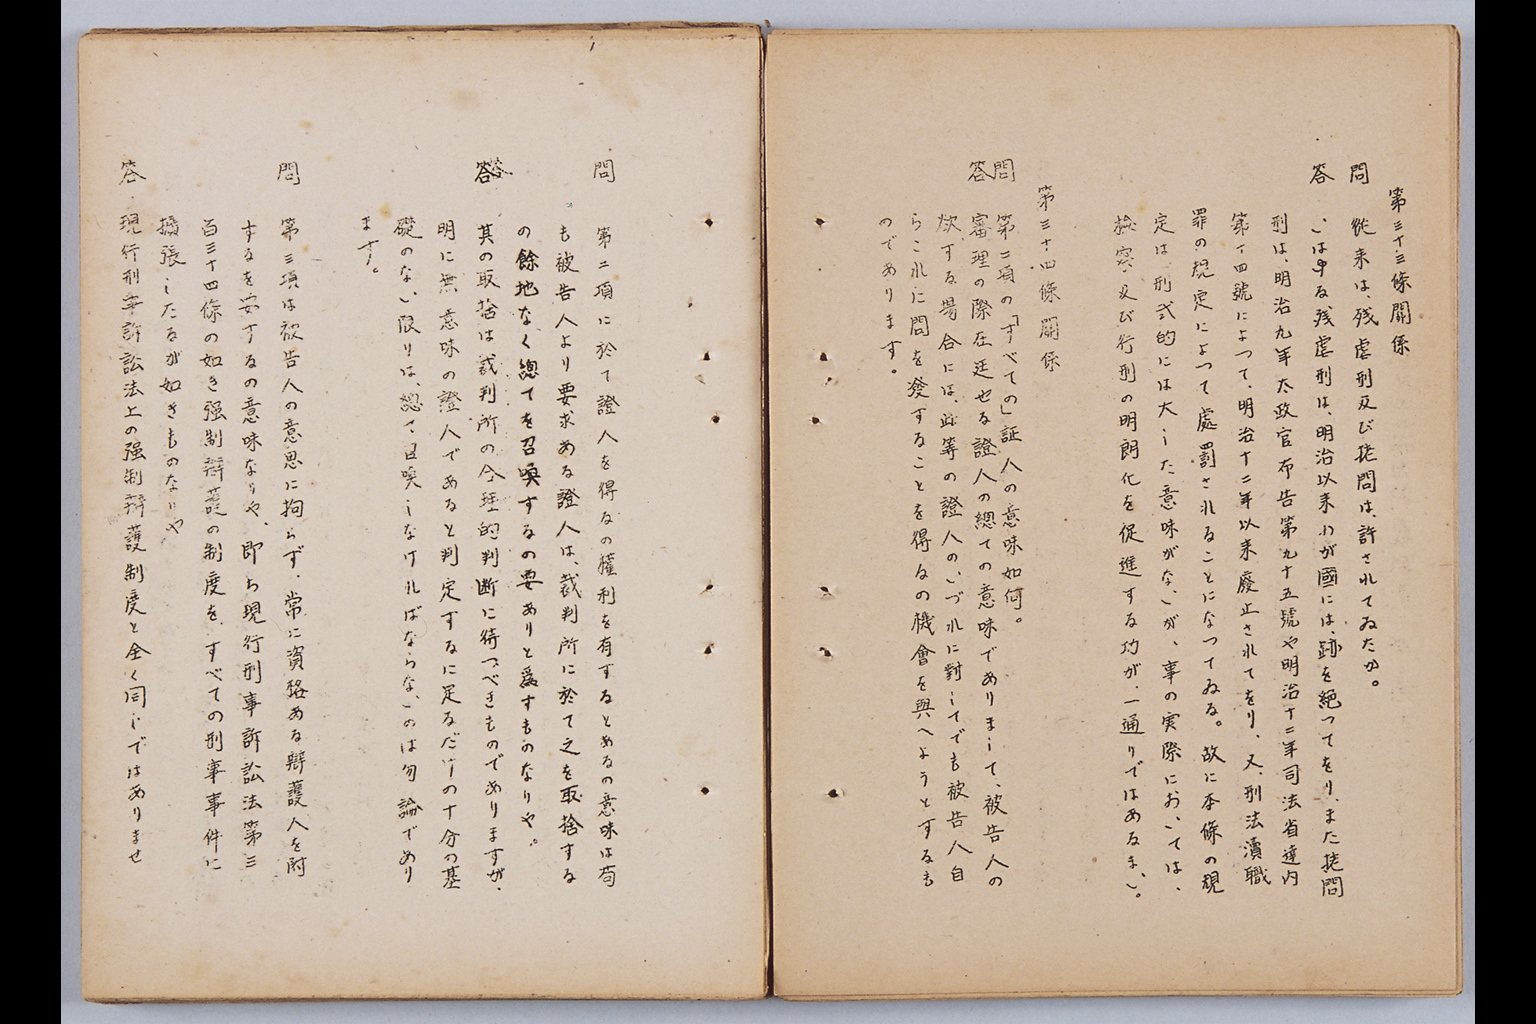 第三十三條關係
問 従来は、残虐刑及び拷問は、許されてゐたか。
答 いはゆる残虐刑は、明治以来わが國には、跡を絶つてをり、また拷問
刑は、明治九年太政官布告第九十五號や明治十二年司法省達内
第十四號によつて、明治十二年以来廢止されてをり、又、刑法瀆職
罪の規定によつて處罰されることになつてゐる。故に本條の規
定は、刑式的には大した意味がないが、事の実際においては、
検察及び行刑の明朗化を促進する功が、一通りではあるまい。
第三十四條關係
問 第二項の「すべての」証人の意味如何。
答 審理の際在廷せる證人の總ての意味でありまして、被告人の
する場合には、此等の證人のいづれに對してでも被告人自
らこれに問を發することを得るの機會を與へようとするも
のであります。
問 第二項に於て證人を得るの權利を有するとあるの意味は苟
も被告人より要求ある證人は、裁判所に於て之を取捨する
の餘地なく總てを召喚するの要ありと爲すものなりや。
答 其の取捨は裁判所の合理的判断に待つべきものでありますが、
明に無意味の證人であると判定するに足るだけの十分の基
礎のない限りは、總て召喚しなければならないのは勿論であり
ます。
問 第三項は被告人の意思に拘らず、常に資格ある辯護人を附
するを要するの意味なりや、即ち現行刑事訴訟法第三
百三十四條の如き强制辯護の制度を、すべての刑事事件に
擴張したるが如きものなりや
答 現行刑事訴訟法上の强制辯護制度と全く同じではありませ